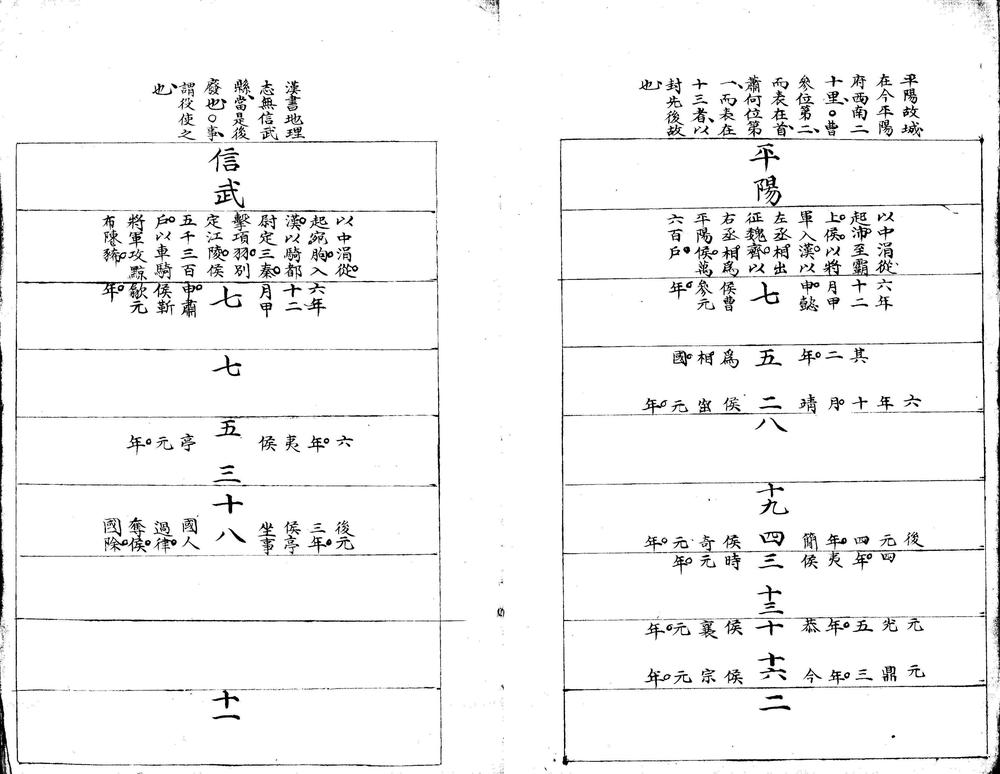 平陽故城
在今平陽
府西南二
十里。曹
參位第二、
而表在首、
蕭何位第
一、而表在
十三者、以
封先後故
也
平陽
以中涓從
起沛至霸
上。侯。以將
軍入漢。以
左丞相出
征魏齊。以
右丞相爲
平陽侯。萬
六百戶。
六年
十二
月甲
申。懿
七
侯曹
參元
年。
其
二年。
五
爲
相
國。
六年十月。靖
二
侯窋元年。
八
十九
後元四年。簡
四
侯奇元年。
四年。夷侯
三
時元年。
十三
元光五年。恭
十
侯襄元年。
十六
元鼎三年。今
侯宗元年。
二
漢書地理
志無信武
縣、當是後
廢也。○事、
謂役使之
也、
信武
以中涓從
起宛朐。入
漢。以騎都
尉定三秦。
擊項羽。別
定江陵。侯
五千三百
戶。以車騎
將軍攻黥
布陳豨。
六年
十二
月甲
七
申。肅
侯靳
歙元
年。
七
五
六年。夷侯
亭元年。
三
十八
後元
三年。
侯亭
坐事
國人
過律。
奪侯。
國除。
十一